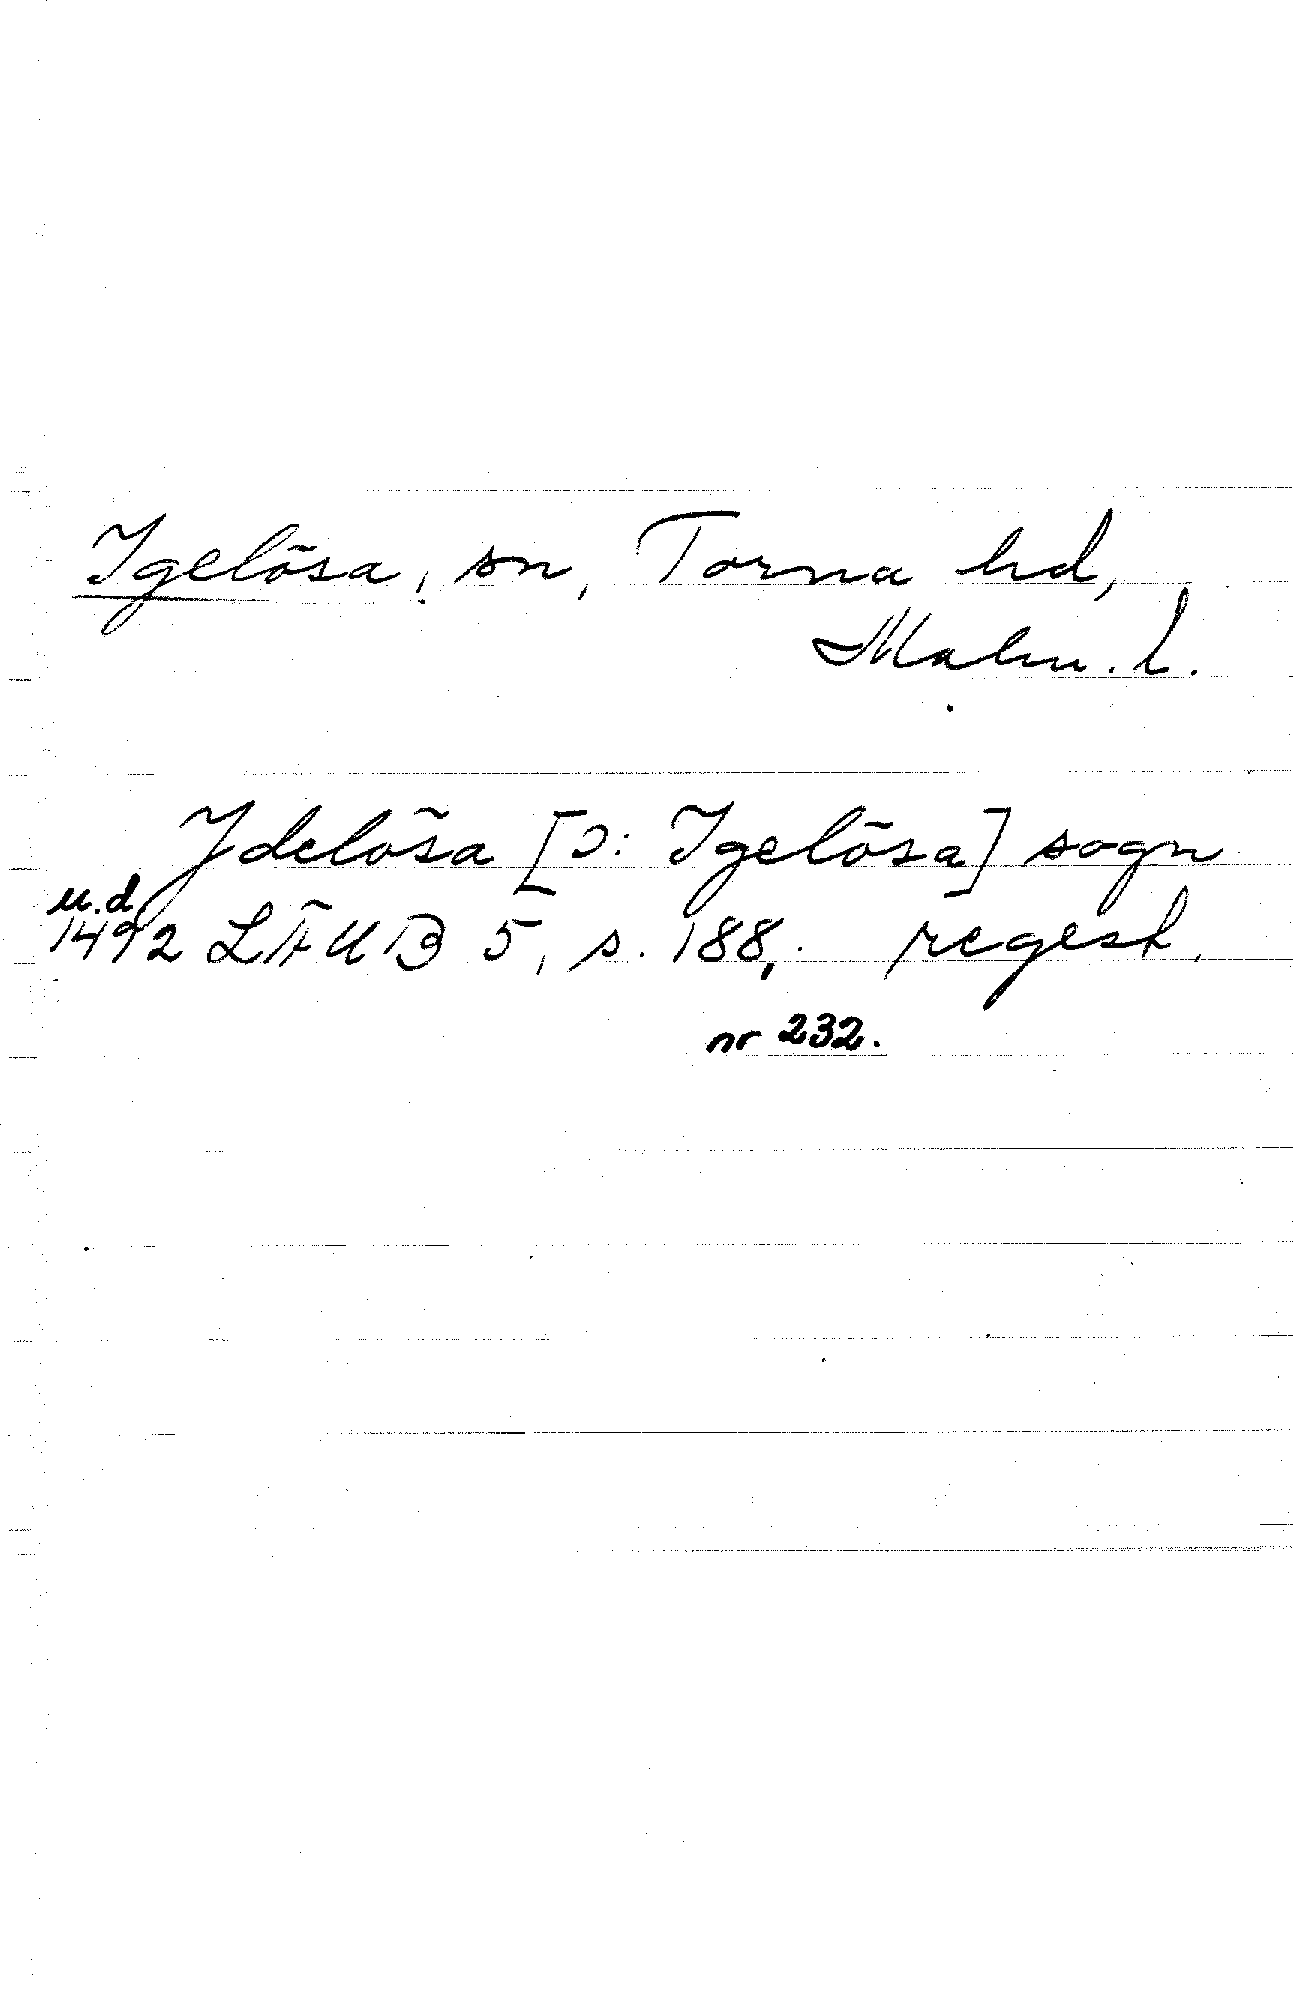 Igelösa, sn, Torna hd,
Malm. l.
Ydelösa [ɔ: Igelösa] sogn
u.d.
1492 LÄUB 5, s. 188, regest.
nr 232.